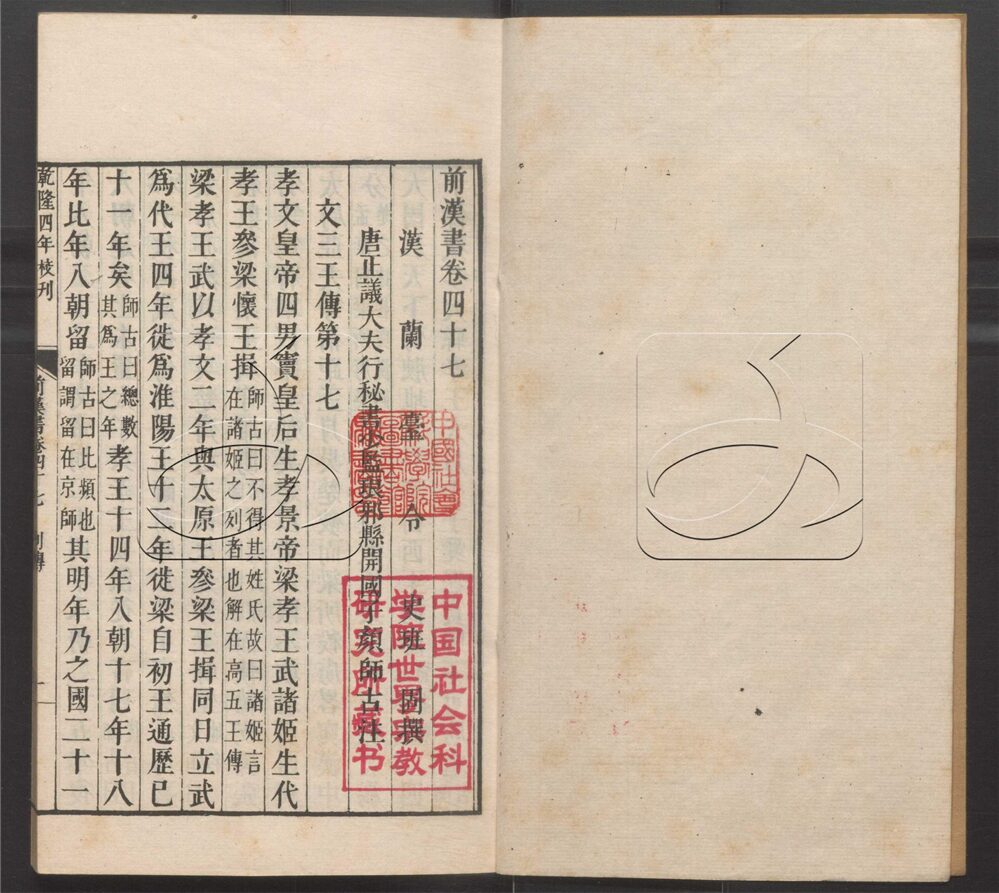 前漢書卷四十七
漢蘭臺令史班固撰
唐正議大夫行秘書少監琅邪縣開國子顏師古注
文三王傳第十七
孝文皇帝四男竇皇后生孝景帝梁孝王武諸姬生代
孝王參梁懷王揖師古曰不得其姓氏故曰諸姬言在諸姬之列者也解在高五王傳
梁孝王武以孝文二年與太原王參梁王揖同日立武
爲代王四年徙爲淮陽王十二年徙梁自初王通歷已
十一年矣師古曰總數其爲王之年孝王十四年入朝十七年十八
年比年入朝留師古曰比頻也留謂留在京師其明年乃之國二十一
乾隆四年校刊
前漢書卷四十七 列傳 一
中國社會科學院
圖書館
中国社会科
学院世界宗教
研究所藏书